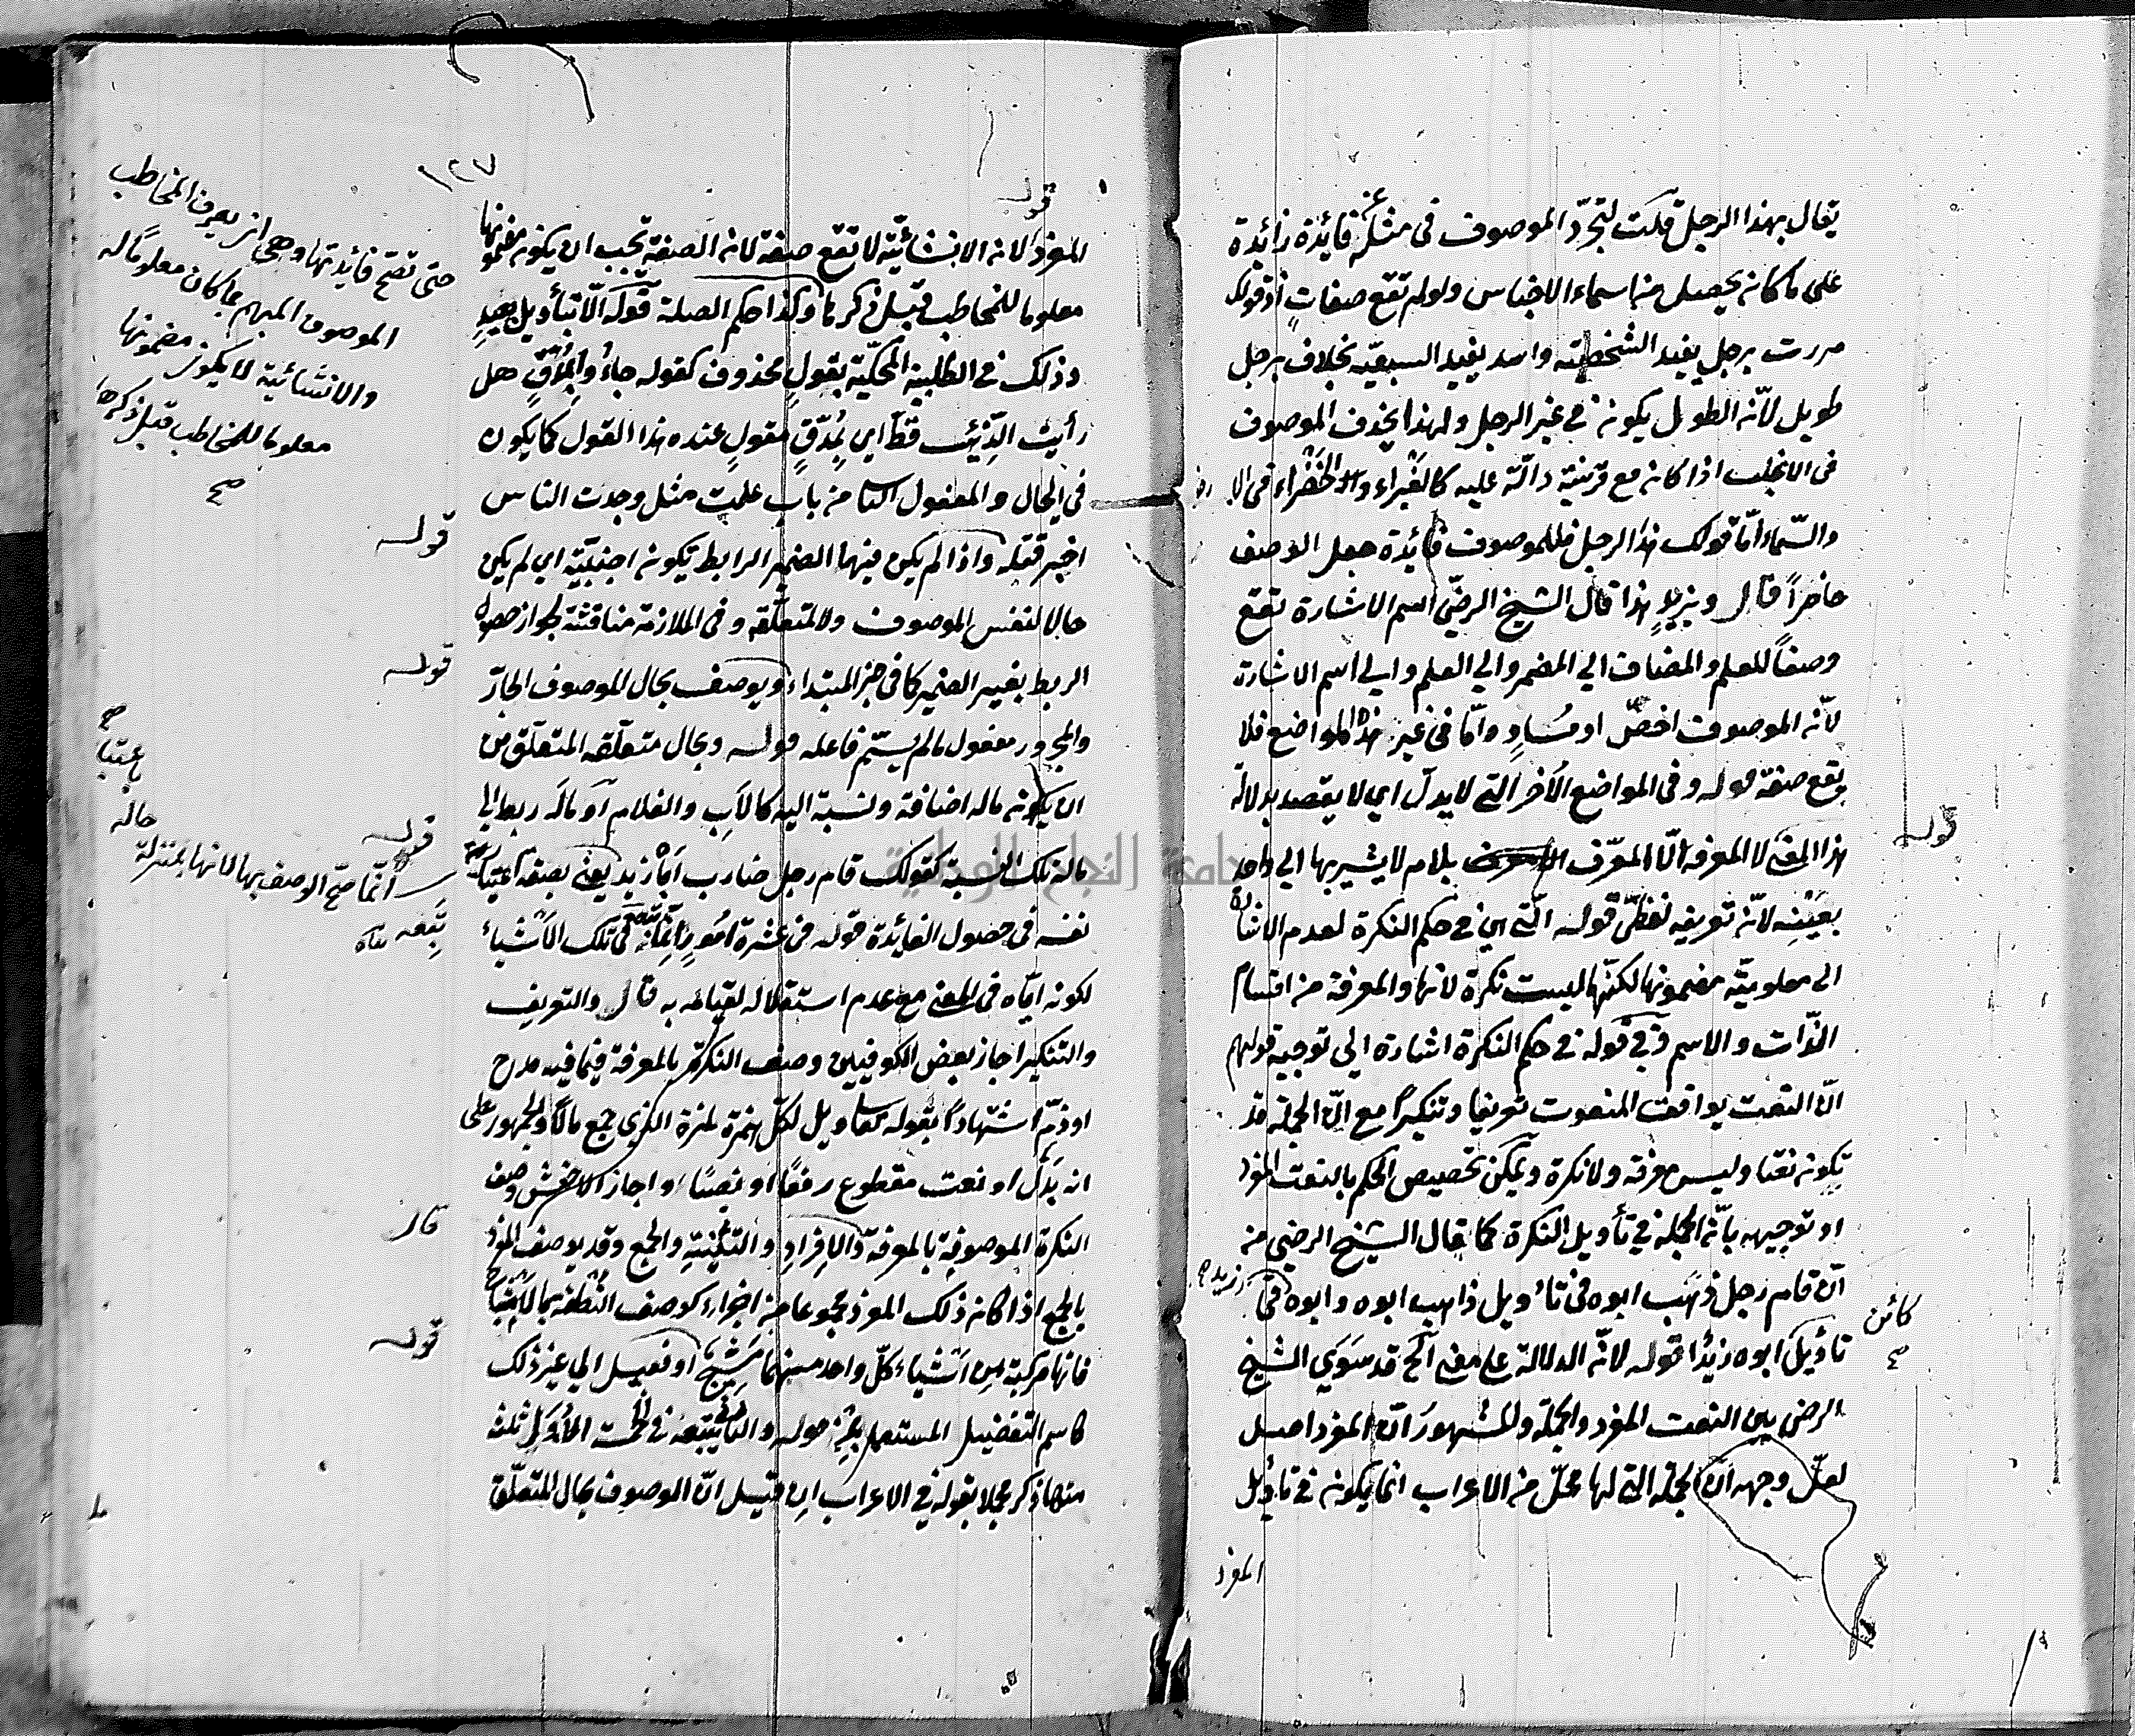 يقال بهذا الرجل قلت لتجرّد الموصوف في مثله عن فائدة زائدة
على ما كان يحصل من اسماء الاجناس ولو لم تقع صفات اذ قولك
مررت برجل يفيد الشخصيّة واسد يفيد السبعيّة بخلاف برجل
طويل لانّ الطويل يكون في غير الرجل ولهذا يحذف الموصوف
في الاغلب اذا كان مع قرينة دالّة عليه كالغبراء والخضراء في الارض
والسّماء امّا قولك هذا الرجل فللموصوف فائدة جعل الوصف
حاضراً قال وبزيدٍ هذا قال الشيخ الرضيّ اسم الاشارة تقع
وصفاً للعلم والمضاف الي المضمر والي العلم والي اسم الاشارة
لانّ الموصوف اخصّ او مُساوٍ وامّا في غير هذه المواضع فلا
يقع صفة قوله وفي المواضع الاُخر الّتي لا يدلّ اي لا يقصد بدلالة
قوله
هذا المعنى لا المعرفة الّا المعرّف بلام لا يشير بها الي واحد
بعَيْنِه لانّ تعريفه لفظيّ قوله الّتي هي في حكم النكرة لعدم الاشارة
الى معلوميّة مضمونها لكنّها ليست نكرة لانها والمعرفة من اقسام
الذّات والاسم وفي قوله في حكم النكرة اشارة الى توجيه قولهم
انّ النعت يوافق المنعوت تعريفا وتنكيراً مع انّ الجملة قد
تكون نعتا وليس معرفة ولا نكرة ويمكن تخصيص الحكم بالنعت المفرد
او توجيهه بانّ الجملة في تأويل النكرة كما قال الشيخ الرضي من
انّ قام رجل ذهَب ابوه في تأويل ذاهب ابوه وابوه زيد في
كائن
تأويل ابوه زيدًا قوله لانّ الدلالة على معنى الخ قد سَوّي الشيخ
الرضي بين النعت المفرد والجملة والمشهورُ انّ المفرد اصل
لعلّ وجهه انّ الجملة التي لها محلّ من الاعراب انما يكون في تأويل
المفرد
١٢٧
قوله
المفرد لان الانشائيّة لا تقع صفة لان الصفة تجب ان يكون مضمونها
معلوما للمخاطب قبل ذكرها وكذا حكم الصلة قوله الّا بتأويل بعيدٍ
وذلك في الطلبيّة المحكيّة بقولٍ محذوف كقوله جاءُوا بِمُذْقٍ هل
رأيت الذّئب قطّ اي بمذقٍ مقولٍ عنده هذا القول كما يكون
في الحال والمفعول الثاني من باب علمت مثل وجدت الناس
اخبر تقله واذا لم يكن فيها الضمير الرابط تكون اجنبيّة اي لم يكن
حالا لنفس الموصوف ولا لمتعلّقه وفي الملازمة مناقشة لجواز حصول
الربط بغير الضمير كما في خبر المبتداء ويوصف بحال الموصوف الجارّ
والمجرور مفعول ما لم يسمّ فاعله قوله وبحال متعلّقه المتعلّق من
ان يكون ماله اضافة ونسبة اليه كالاَبِ والغلام او ماله ربط الى
ما لذلك النسبة كقولك قام رجل ضارب اَباه زيد يعني بصفة اعتباريّة
نفسه في حصول الفائدة قوله في عشرة اُمُورٍ في تلك الاشياءِ
لكونه ايّاه في المعنى مع عدم استقلاله لقيامه به قال والتعريف
والتنكير اجاز بعض الكوفيين وصف النكرة بالمعرفة فيما فيه مدح
او ذمّ استشهاداً بقوله تعالى ويل لكلّ همزة لمزة الذي جمع مالاً والجمهور على
انه بدل او نعت مقطوع رفعًا او نصبًا واجاز الاخفش وصف
النكرة الموصوفة بالمعرفة والاِفرادِ والتثنيةِ والجمع وقد يوصف المفرد
بالجمع اذا كان ذلك المفرد مجموعا من اجزاء كوصف النّطفة بالامشاج
فانها مركّبة مِن اشياء كلّ واحد منها مشيج او فعيل الي غير ذلك
كاسم التفضيل المستعمل بمِنْ قوله والثاني يتبعه في الخمسة الاُوَلِ ثلثة
منها ذكر مجملا بقوله في الاعراب اِن قيل انّ الوصف بحال المتعلّق
حتى تصحّ فائدتها وهي ان يعرف المخاطب
الموصوف المبهم بما كان معلومًا له
والانشائية لا يكون مضمونها
معلوما للمخاطب قبل ذكرها
صح
قوله
قوله
صح
باعتبار
حاله
قوله
انّما صحّ الوصف بها لانها بمنزلة
قال
قوله